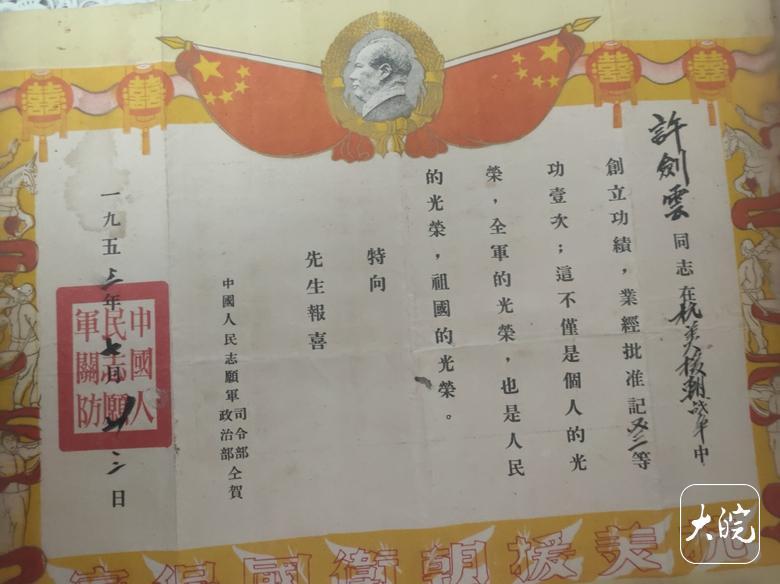 囍 囍 囍 囍
許劍雲同志在抗美援朝战争中
創立功績，業經批准記等
功壹次；這不僅是個人的光
榮，全軍的光榮，也是人民
的光榮，祖國的光榮。
特向
先生報喜
中國人民志願軍司令部政治部仝賀
一九五三年七月廿日
中國人
民志願
軍關防
抗美援朝衛國保家
大皖